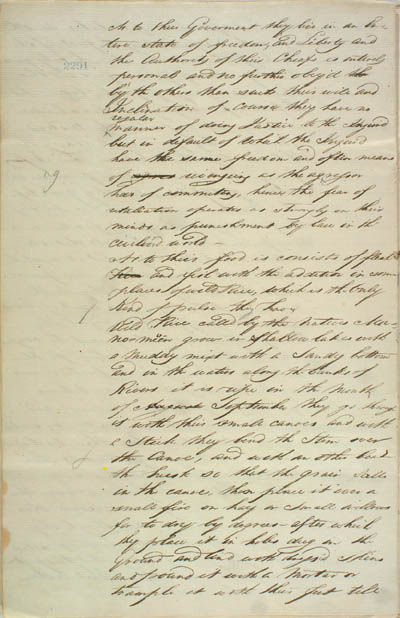 As to their Goverment they live in an En-
tire state of freedom and Liberty and
2291
the Authority of their Chiefs is entirely
personal and no further obey'd
by the others then suits their will and
Inclination of Course they have no
regular
manner of doing Justice to the Injured
but in default of which the Injured
have the same freedom and often means
of revenging as the agressor
has of committing, hence the fear of
retaliation operates as strongly on their
minds as punishment by law in the
civilized world —
As to their food is consists of flesh
and fish with the addition in some
places of wild Rice, which is the only
kind of pulse they have
Wild Rice called by the Natives
grows in shallow lakes with
a muddy mixt with a Sandy bottom
and in the waters along the banks of
Rivers it is ripe in the Month
of September they go through
it with their small canoes and with
a Stick they bend the Stem over
the Canoe, and with an other beat
the husk so that the grain falls
in the canoe, then place it over a
small fire on hay or small willows
for to dry by degrees after which
they place it in holes dug in the
ground and lined with Skins
and pound it with a Mortar or
trample it with their feet till